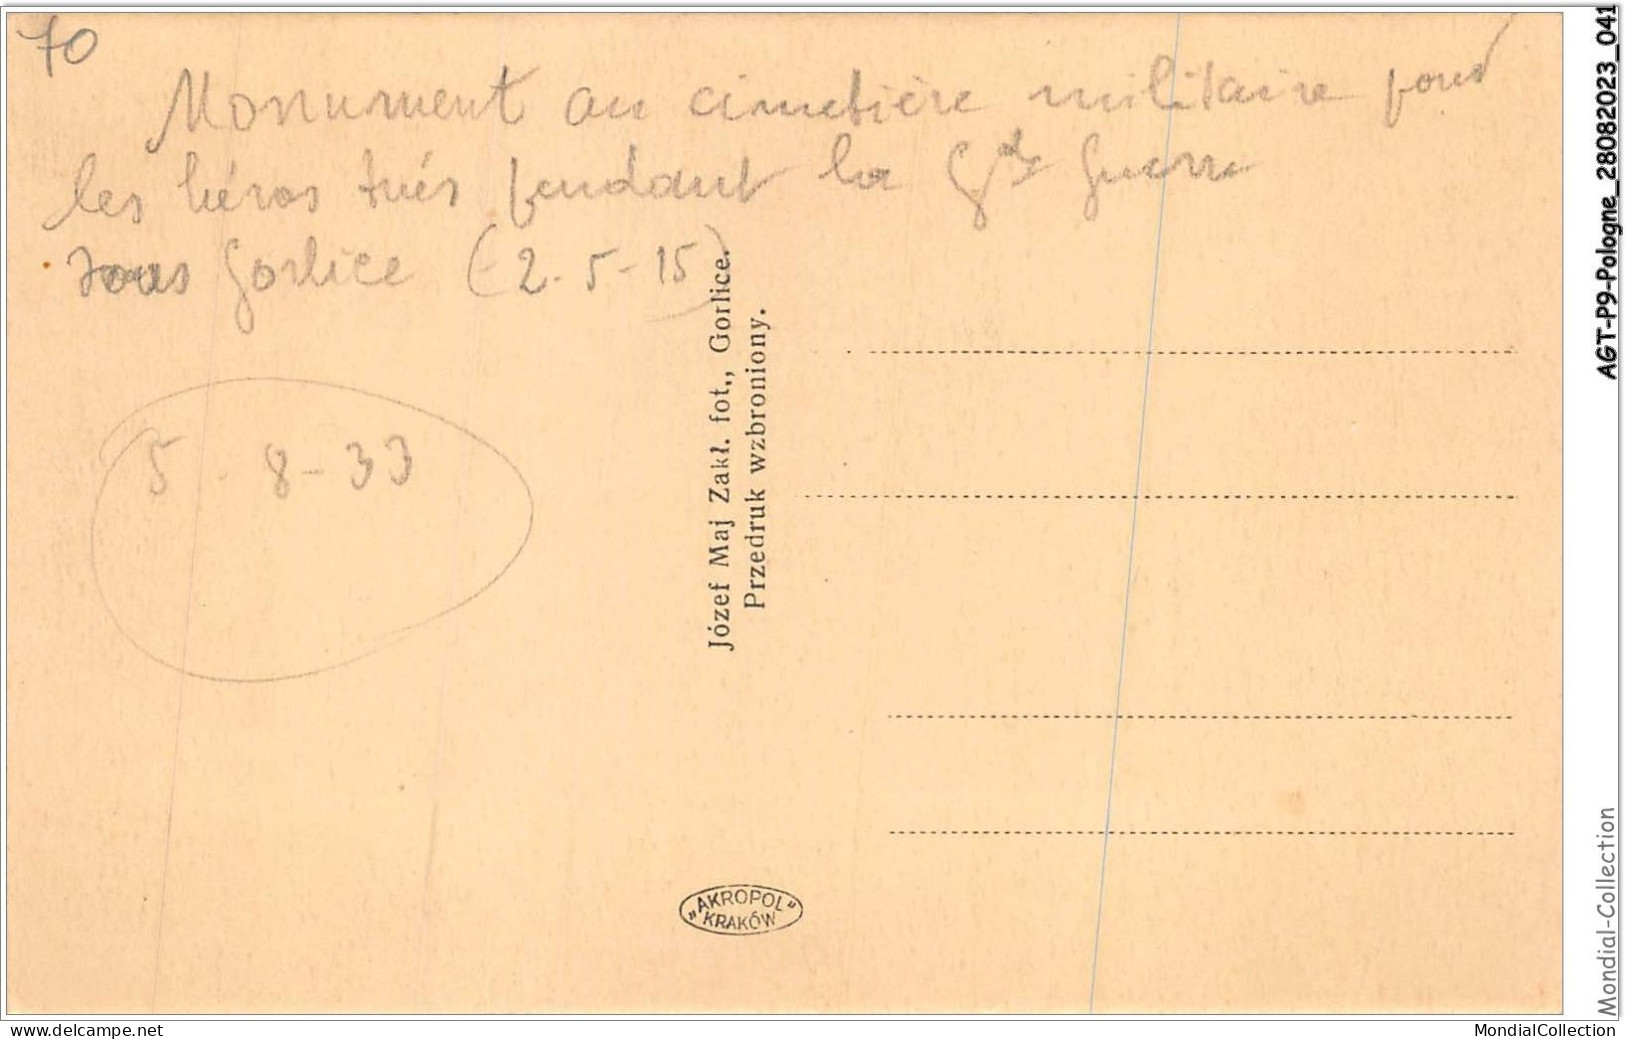 70
Monument au cimetière militaire pour
les héros tués pendant la Gde Guerre
sous Gorlice (-2-5-15)
5-8-33
Józef Maj Zakł. fot., Gorlice.
Przedruk wzbroniony.
"AKROPOL"
KRAKÓW
AGT-P9-Pologne_28082023_041
Mondial-Collection
www.delcampe.net
MondialCollection